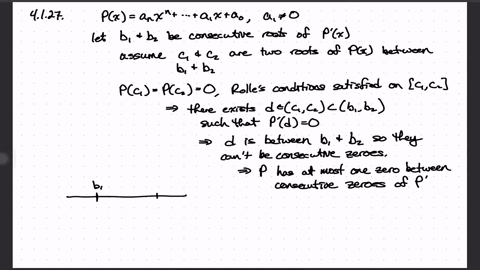 4.1.27. P(x) = aₙxⁿ + ··· + a₁x + a₀, a₁ ≠ 0
let b₁ & b₂ be consecutive roots of P'(x)
assume c₁ & c₂ are two roots of P(x) between
b₁ & b₂
P(c₁) = P(c₂) = 0, Rolle's conditions satisfied on [c₁, c₂]
⇒ there exists d ∈ (c₁, c₂) ⊂ (b₁, b₂)
such that P'(d) = 0
⇒ d is between b₁ & b₂ so they
can't be consecutive zeroes.
⇒ P has at most one zero between
consecutive zeroes of P'
b₁